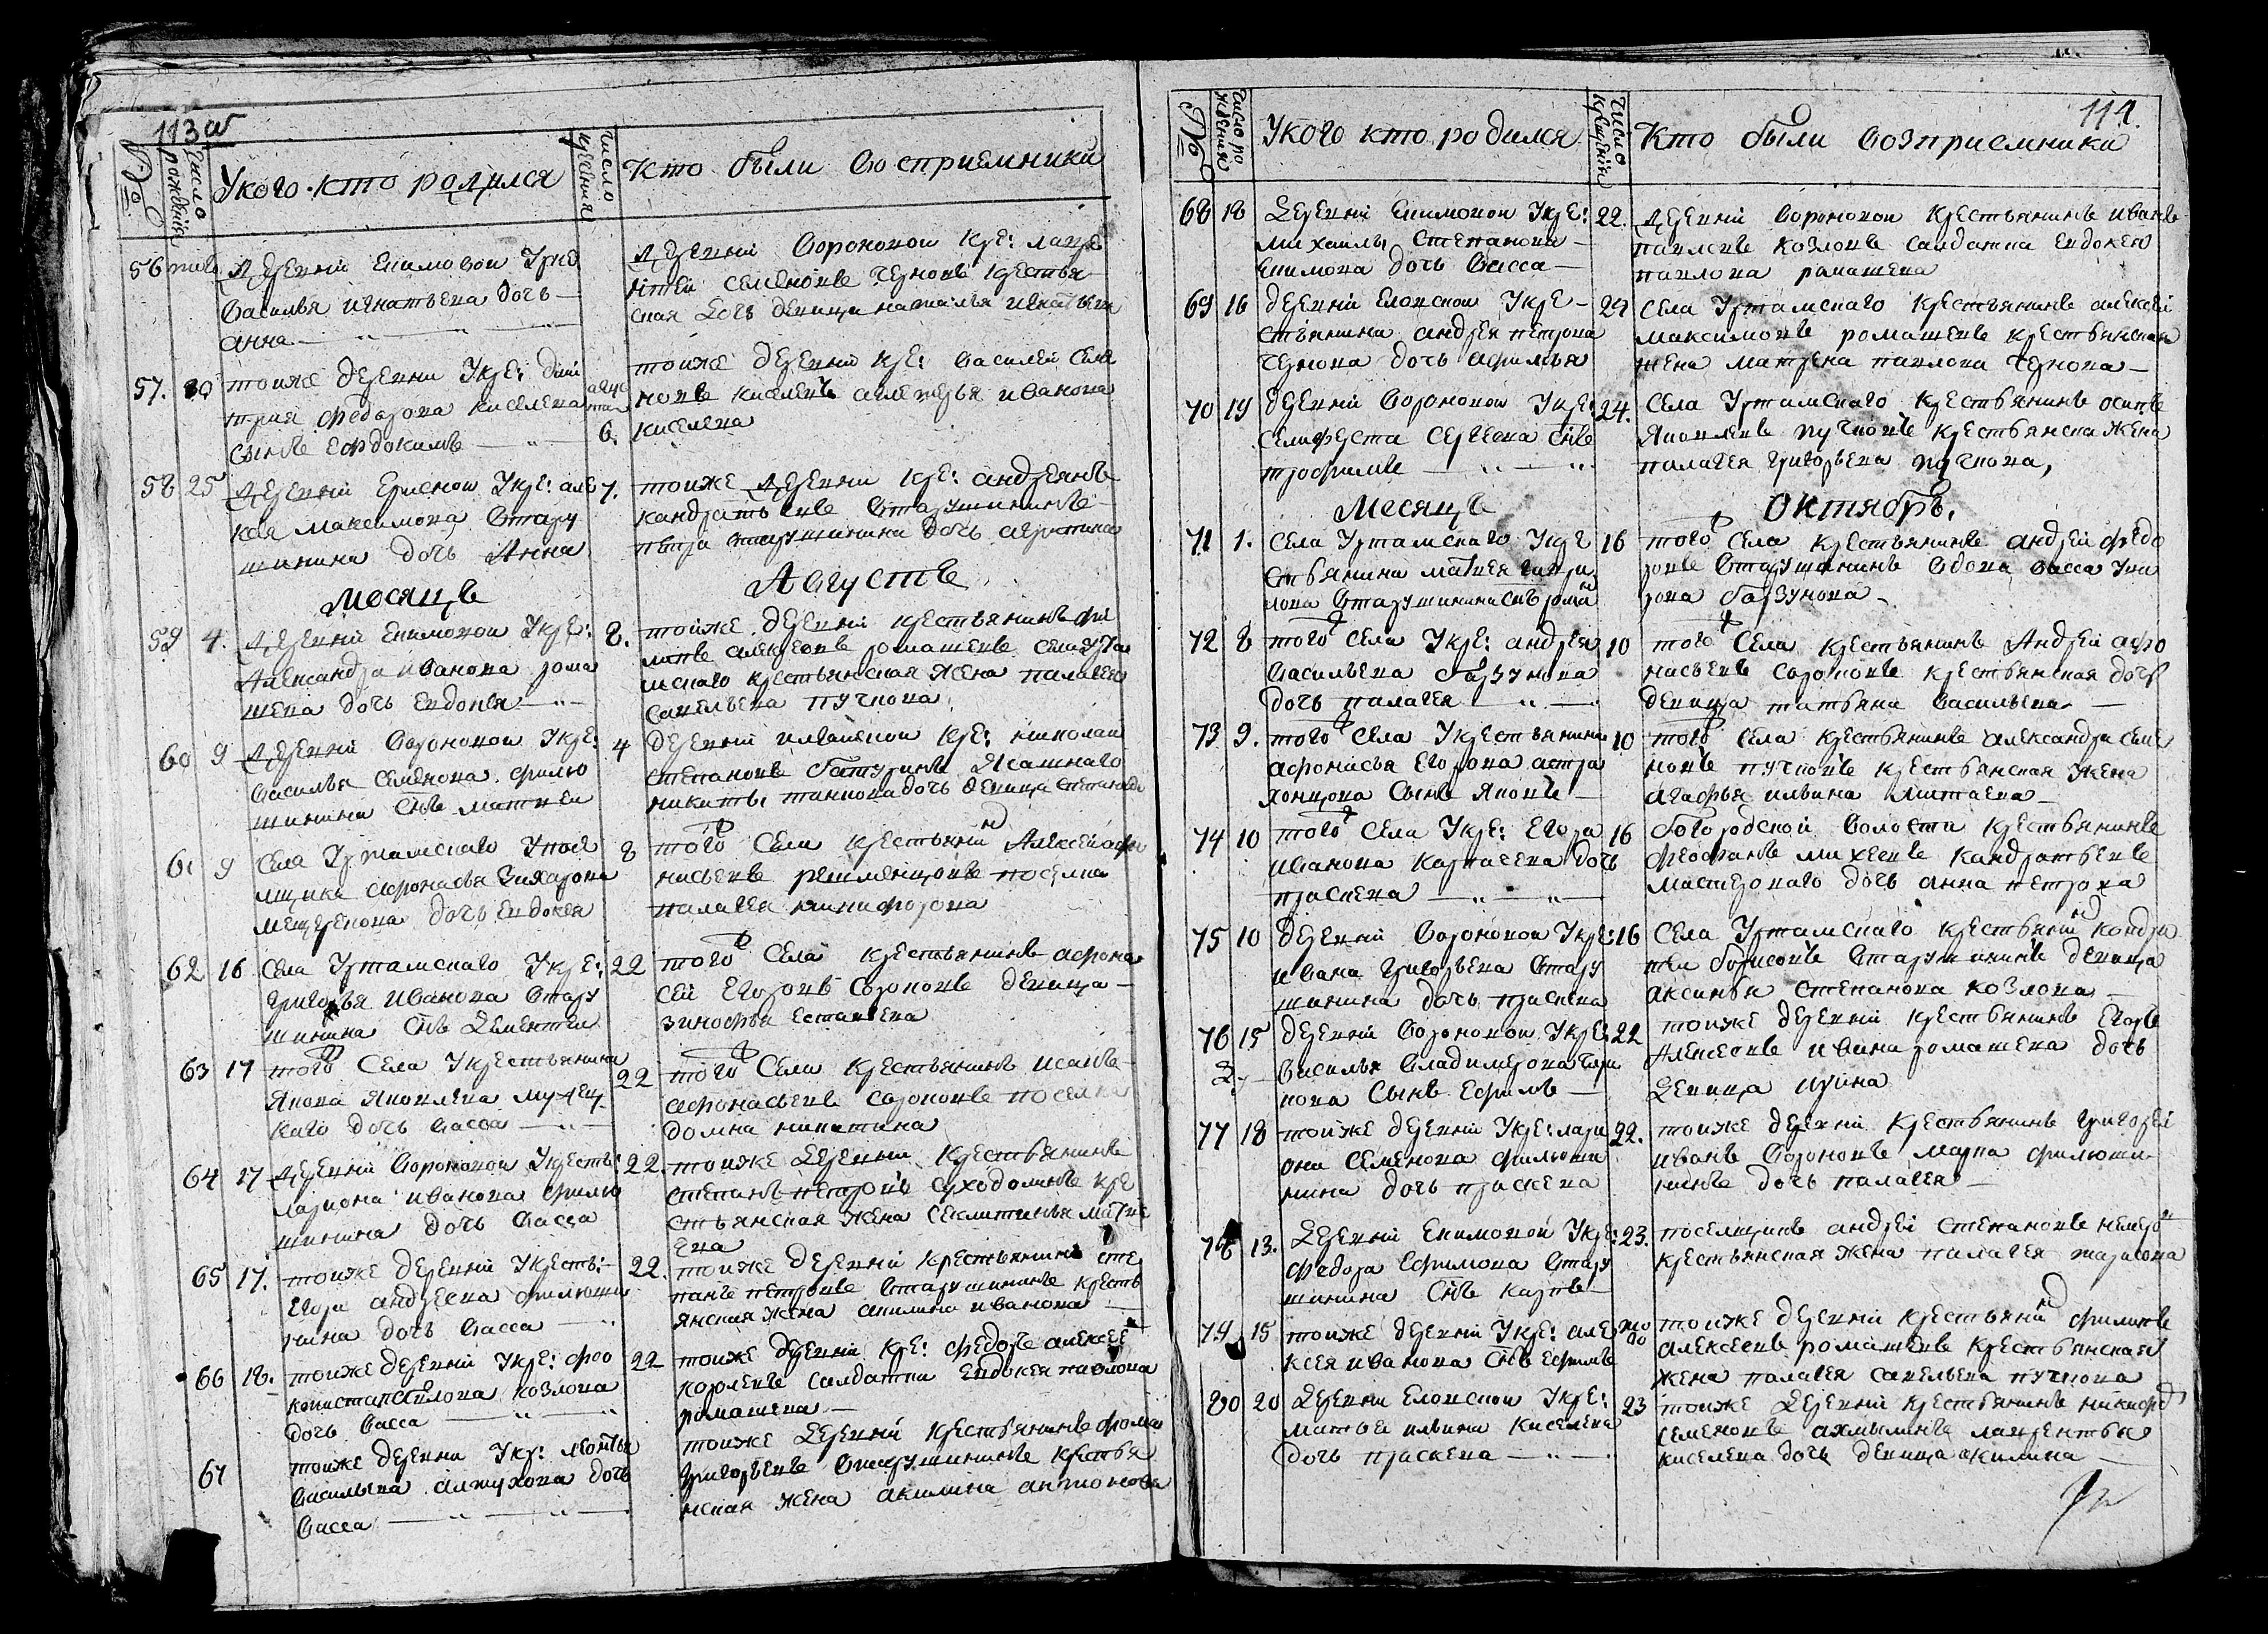 113 об
№
Число рождения
У кого кто родился
Число крещения
Кто были восприемники
56
Деревни Екимовой
Василья Игнатьева дочь
Анна
Деревни Вороновой кре:
Семеновъ Черновъ крестья
ская дочь девица наталья игнатьева
57. 30
тойже деревни Укре: Дми
трия Федорова Киселева
сынъ Евдокимъ
авгус
та
6.
тойже деревни кре: Василей Семе
новъ Киселевъ Иванова
Киселева
58 25
Деревни Укре: але
ксея Максимова Стару
шинина дочь Анна
7.
тойже деревни кре: андреянъ
кандратьевъ Старушининъ
петра старушинина дочь
Месяцъ
Августъ
59 4.
Деревни Екимовой Укре:
Александра Иванова рома
шева дочь Евдокея
8.
тойже деревни крестьянинъ фи
липъ алексеевъ ромашевъ села Урта
мскаго крестьянская жена палагея
савельева пучкова
60 9
Деревни Вороновой Укре:
Василья Семенова филю
шинина снъ матвей
4
деревни кре: николай
степановъ батуринъ
никиты дочь девица степанида
61 9
Села Уртамскаго У посе
лщика Афонасья Захарова
мещерекова дочь Евдокея
8
того Села крестьянинъ Алексей афо
насьевъ поселка
палагея никифорова
62 16
Села Уртамскаго Укре:
Григорья Иванова Стару
шинина снъ Дементей
22
того Села крестьянинъ афона
сей Егоровъ Вороновъ девица
зиновья
63 17
того Села Укрестьянина
Якова Яковлева
каго дочь васса
22
того Села крестьянинъ Исакъ
афонасьевъ вороновъ поселка
домна никитина
64 17
Деревни Вороновой Укресть:
лариона Иванова филю
шинина дочь Васса
22.
тойже деревни крестьянинъ
степанъ петровъ суходолинъ кре
стьянская жена матве
ева
65 17.
тойже деревни Укресть:
Егора андреева филюши
нина дочь Васса
22.
тойже деревни крестьянинъ сте
панъ петровъ Старушининъ кресть
янская жена акилина иванова
66 18.
тойже деревни Укре: фео
козлова
дочь Васса
22
тойже деревни кре: федоръ алексее
королевъ салдатка Евдокея павлова
ромашева
67
тойже деревни Укр: леонтья
Васильева алтухова дочь
Васса
тойже деревни крестьянинъ фома
Григорьевъ Старушининъ крестья
нская жена акилина антонова
114.
№
Число рождения
У кого кто родился
Число крещения
Кто были возприемники
68 18
Деревни Екимовой Укре:
михаилы степанова
Екимова дочь Васса
22.
Деревни Вороновой крестьянинъ иванъ
павловъ козловъ салдатка Евдокея
павлова ромашева
69 16
деревни Еловской Укре
стьянина андрея петрова
чернова дочь афимья
24
Села Уртамскаго крестьянинъ алексей
максимовъ ромашевъ крестьянская
жена матрена павлова чернова
70 19
деревни Вороновой Укре:
Сергеева снъ
трофимъ
24.
Села Уртамскаго крестьянинъ осипъ
Яковлевъ пучковъ крестьянска жена
палагея григорьева пучкова,
Месяцъ
Октябрь.
71 1.
Села Уртамскаго Укре
стьянина матвея гаври
лова Старушинина снъ роман
16
того Села крестьянинъ андрей федо
ровъ Старушининъ вдова васса
рова барзунова
72 8
того Села Укре: андрея
Васильева барзунова
дочь палагея
10
того Села крестьянинъ Андрей афо
насьевъ вороновъ крестьянская дочь
девица татьяна васильева
73 9.
того Села Укрестьянина
афонасья Егорова астра
ханцова сынъ Яковъ
10
того Села крестьянинъ александра семе
новъ пучковъ крестьянская жена
агафья ильина
74 10
того Села Укре: Егора
иванова карпачева дочь
праскева
16
богородской волости крестьянинъ
феофанъ михеевъ кандратьевъ
мастероваго дочь анна петрова
75 10
деревни Вороновой Укре:
Ивана Григорьева Стару
шинина дочь праскева
16
Села Уртамскаго крестьянинъ кондра
тей борисовъ Старушининъ девица
аксинья степанова козлова
76 15
2.
деревни Вороновой Укре:
василья владимерова
кова сынъ Ефимъ
22
тойже деревни крестьянинъ Егоръ
Алексеевъ ивана ромашева дочь
девица ирина
77 18
тойже деревни Укре: лари
она семенова филюши
нина дочь праскева
22.
тойже деревни крестьянинъ Григорей
иванъ вороновъ марка филюши
нинъ дочь палагея
78 13.
Деревни Екимовой Укре:
Федора Ефимова Стару
шинина снъ карпъ
23.
поселщикъ андрей степановъ
крестьянская жена палагея тарасова
79 15
тойже деревни Укре: але
ксея иванова снъ Ефимъ
то
до
тойже деревни крестьянинъ филипъ
алексеевъ ромашевъ крестьянская
жена палагея савельева пучкова
80 20
Деревни Еловской Укре:
матвея ильина киселева
дочь праскева
23
тойже деревни крестьянинъ никифор
семеновъ лаврентья
киселева дочь девица акилина